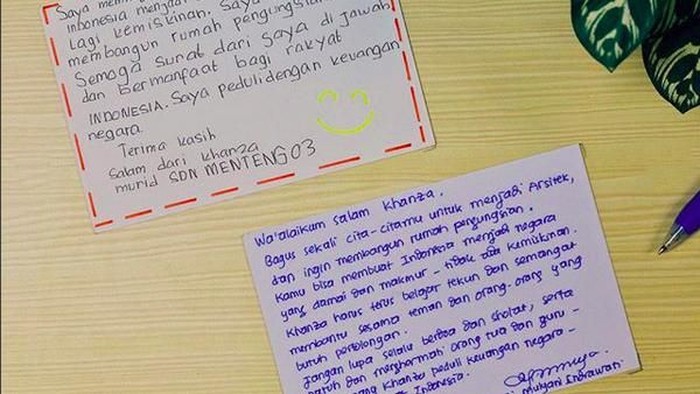 Saya
INDONESIA menjadi
Lagi kemiskinan. Saya
membangun rumah pengungsian
Semoga surat dari saya di jawab
dan bermanfaat bagi rakyat
INDONESIA. Saya peduli dengan keuangan
negara
Terima kasih
Salam dari khanza
murid SDN MENTENG 03
Wa'alaikum salam Khanza.
Bagus sekali cita-citamu untuk menjadi Arsitek,
dan ingin membangun rumah pengungsian.
Kamu bisa membuat Indonesia menjadi negara
yang damai dan makmur - tidak ada kemiskinan.
Khanza harus terus belajar tekun dan semangat
membantu sesama teman dan orang-orang yang
butuh pertolongan.
Jangan lupa selalu berdoa dan sholat, serta
patuh dan menghormati orang tua dan guru -
Khanza peduli keuangan negara -
Indonesia.
Mulyani Indrawati